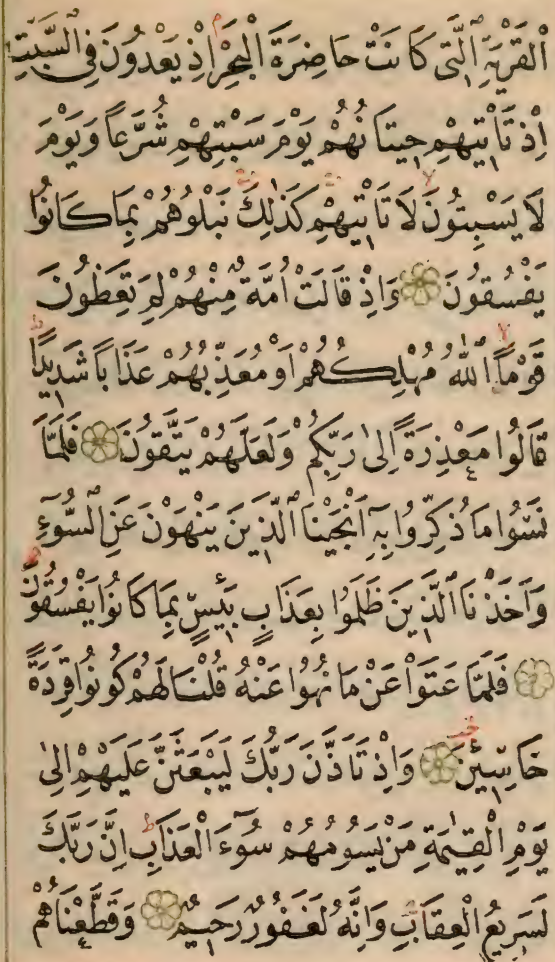 اَلْقَرْيَةِ الَّتٖى كَانَتْ حَاضِرَةَ الْبَحْرِ اِذْ يَعْدُونَ فِى السَّبْتِ
اِذْ تَاْتٖيهِمْ حٖيتَانُهُمْ يَوْمَ سَبْتِهِمْ شُرَّعاً وَيَوْمَ
لَا يَسْبِتُونَ لَا تَاْتٖيهِمْ كَذٰلِكَ نَبْلُوهُمْ بِمَا كَانُوا
يَفْسُقُونَ ۝ وَاِذْ قَالَتْ اُمَّةٌ مِنْهُمْ لِمَ تَعِظُونَ
قَوْماً اَللّٰهُ مُهْلِكُهُمْ اَوْ مُعَذِّبُهُمْ عَذَاباً شَدٖيداً
قَالُوا مَعْذِرَةً اِلٰى رَبِّكُمْ وَلَعَلَّهُمْ يَتَّقُونَ ۝ فَلَمَّا
نَسُوا مَا ذُكِّرُوا بِهٖٓ اَنْجَيْنَا الَّذٖينَ يَنْهَوْنَ عَنِ السُّوٓءِ
وَاَخَذْنَا الَّذٖينَ ظَلَمُوا بِعَذَابٍ بَئٖيسٍ بِمَا كَانُوا يَفْسُقُونَ
۝ فَلَمَّا عَتَوْا عَنْ مَا نُهُوا عَنْهُ قُلْنَا لَهُمْ كُونُوا قِرَدَةً
خَاسِئٖينَ ۝ وَاِذْ تَاَذَّنَ رَبُّكَ لَيَبْعَثَنَّ عَلَيْهِمْ اِلٰى
يَوْمِ الْقِيٰمَةِ مَنْ يَسُومُهُمْ سُوٓءَ الْعَذَابِ اِنَّ رَبَّكَ
لَسَرٖيعُ الْعِقَابِ وَاِنَّهُ لَغَفُورٌ رَحٖيمٌ ۝ وَقَطَّعْنَاهُمْ